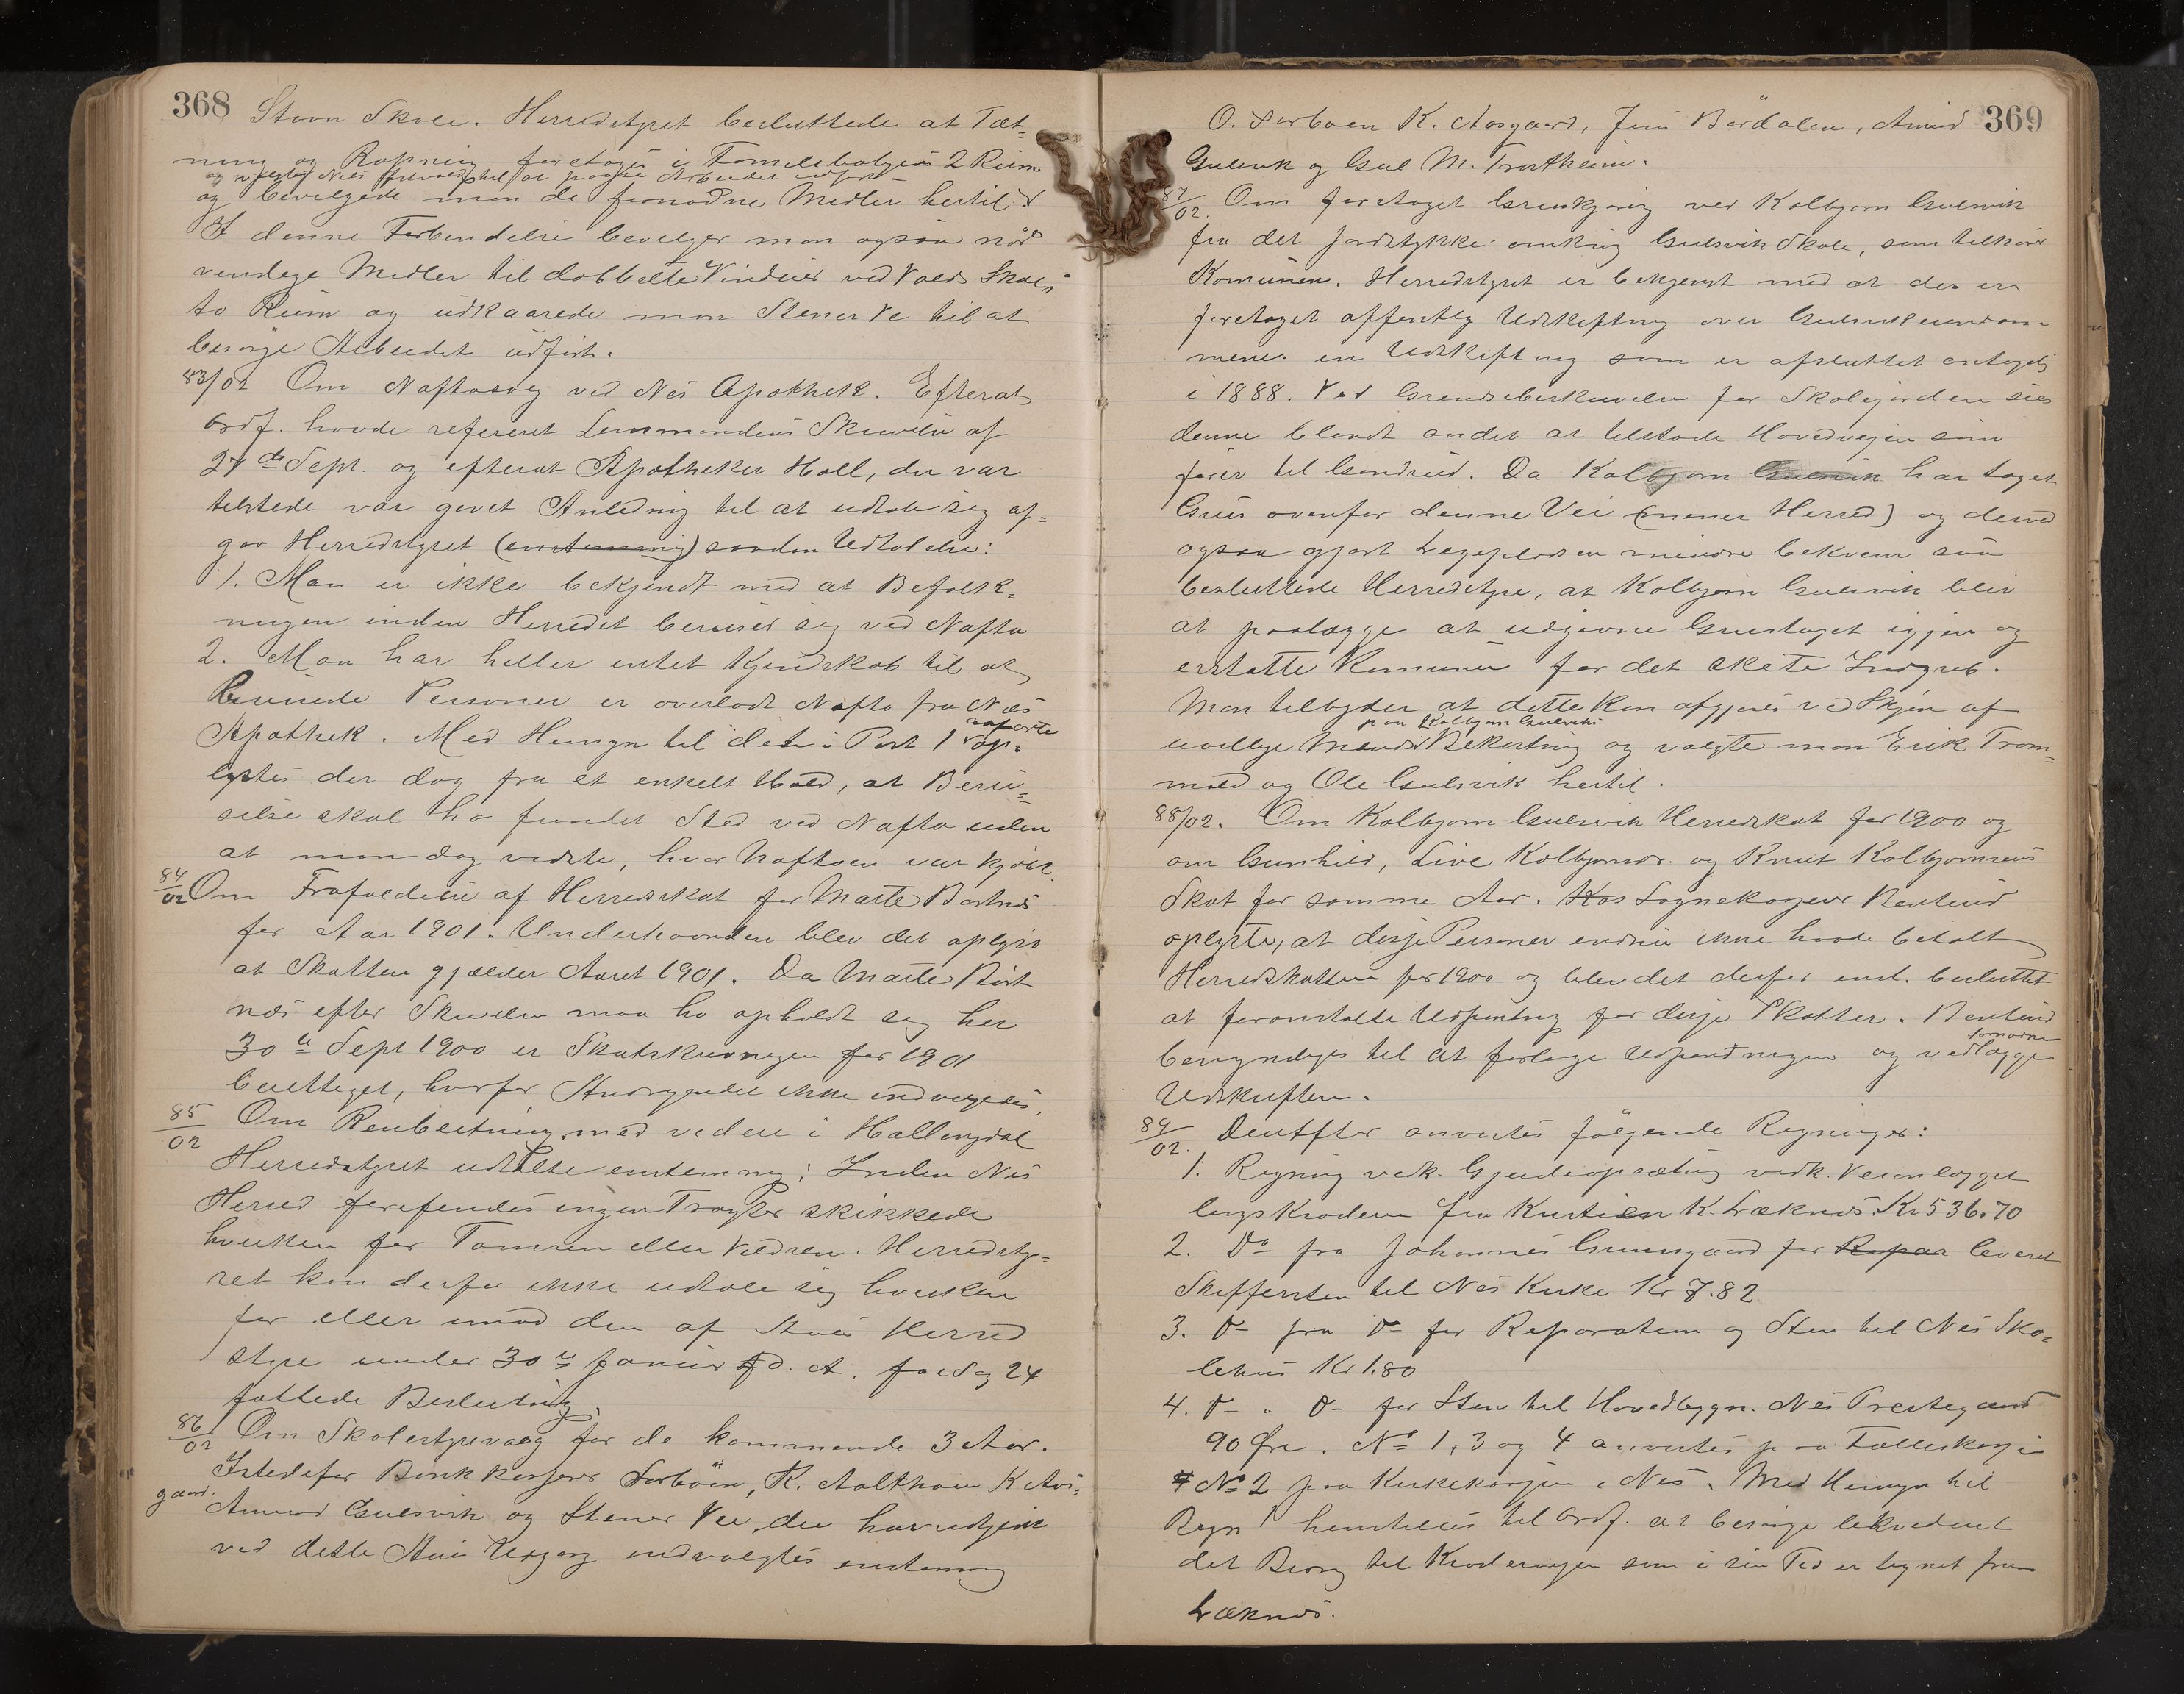 368
Stavn Skole. Herredstyret besluttede at Tæt-
ning og Rapning foretages i Familebolgens 2 Rum
og valgtes Nils til at paase Arbeidet udført
og bevilgede man de fornødne Midler hertil.
I denne Forbindelse bevilger man ogsaa nød-
vendige Midler til dobbelte Vinduer ved Volds Skoles
to Rum og udkaarede man Stener Ve til at
besørge Arbeidet udført.
83/02 Om Naftasalg ved Nes Apothek. Efterat
Ordf. havde refereret Lensmandens Skrivelse af
27de Sept. og efterat Apotheker Holl, der var
tilstede var givet Anledning til at udtale sig af-
gav Herredstyret (enstemmig) saadan Udtalelse:
1. Man er ikke bekjendt med at Befolk-
ningen inden Herredet beruser sig ved Nafta
2. Man har heller intet Kjendskab til at
Berusede Personer er overladt Nafta fra Nes
Apothek. Med Hensyn til det i Post 1 anførte op-
lystes der dog fra et enkelt Hold, at Beru-
selse skal ha fundet Sted ved Nafta uden
at man dog vidste, hvor Naftaen var kjøbt.
84/02 Om Frafaldelse af Herredskat for Marte Bortnes
for Aar 1901. Underhaanden blev det oplyst
at Skatten gjælder Aaret 1901. Da Marte Bort
nes efter Skrivelsen maa ha opholdt sig her
30te Sept 1900 er Skatskrivningen for 1901
berettiget, hvorfor Andragendet ikke indvilgedes.
85/02 Om Renbeitning med videre i Hallingdal
Herredstyret udtalte enstemmig: Inden Nes
Herred forefindes ingen Trakter skikkede
hverken for Tamren eller Vildren. Herredsty-
ret kan derfor ikke udtale sig hverken
for eller imod den af Aals Herred
styre under 30te Januar d. A. Sag 24
fattede Beslutning.
86/02 Om Skolestyrevalg for de kommende 3 Aar.
Istedefor Bankkasserer Sorbøen, K. Kolkhoen K Aas-
gaard. Amund Gulsvik og Stener Vee, der har udgjort
ved dette Aars Udgang indvalgtes enstemmig
369
O. Sorboen K. Aasgaard, Jens Bördalen, Amund
Gulsvik og Gul M. Trostheim.
87/02. Om foretaget Gruskjøring ved Kolbjørn Gulsvik
fra det Jordstykke omkring Gulsvik Skole, som tilhører
Komunen. Herredstyret er bekjendt med at der er
foretaget offentlig Udskiftning over Gulsvikeiendom-
mene. en Udskiftning som er afsluttet antagelig
i 1888. Ved Grændsebeskrivelsen for Skolejorden sies
denne blandt andet at tilstøde Hovedveien som
fører til Gandrud. Da Kolbjørn Gulsvik har taget
Grus ovenfor denne Vei (mener Herred) og derved
ogsaa gjort Legepladsen mindre bekvem saa
besluttede Herredstyre, at Kolbjørn Gulsvik blir
at paalægge at udjevne Grustaget igjen og
erstatte Komunen for det skete Indgreb.
Man tilbyder at dette kan afgjøres ved Skjøn af
uvillige Mænd paa Kolbjørn Gulsviks Bekostning og valgte man Erik Trom-
mald og Ole Gulsvik hertil.
88/02. Om Kolbjørn Gulsvik Herredskat for 1900 og
om Gunhild, Live Kolbjørnsd. og Knut Kolbjørnsens
Skat for samme Aar. Kas Sognekasserer Bentsrud
oplyste, at disse Personer endnu ikke havde betalt
Herredskatten for 1900 og blev det derfor enst. besluttet
at foranstalte Udpantning for disse Skatter. Bentsrud
bemyndiges til at forlange Udpantningen og vedlægge fornødne
Udskrifter.
89/02. Derefter anvistes følgende Regninger:
1. Regning vedk. Gjerdeopsætning vedk. Veianlægget
langs Krøderen fra Kristian K. Læknes. Kr 536.70
2. Do fra Johannes Grunsgaard for Repar leveret
Skiffersten til Nes Kirke Kr 7.82
3. Do fra Do for Reparation og Sten til Nes Sko-
lehus Kr 1.80
4. Do " Do for Sten til Hovedbygn. Nes Prestegaard
90 Øre. No 1, 3 og 4 anvistes paa Fælleskassen
No 2 paa Kirkekassen i Nes. Med Hensyn til
Regn 1 henstilles til Ordf. at besørge likvideret
det Bidrag til Krøderveien som i sin Tid er tegnet fra
Læknes.